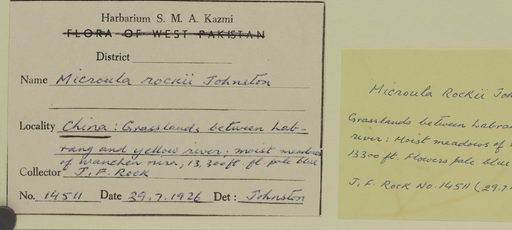 Harbarium S. M. A. Kazmi
FLORA OF WEST PAKISTAN
District
Name Microula rockii Johnston
Locality China: Grasslands between Lab-
rang and yellow river. moist meadows
of wanchen nira, 13,300 ft. fl pale blue
Collector J. F. Rock
No. 14511 Date 29.7.1926 Det: Johnston
Microula Rockii Joh
Grasslands between Labra
river: Moist meadows of
13300 ft. Flowers pale blue
J. F. Rock No. 14511 (29.7